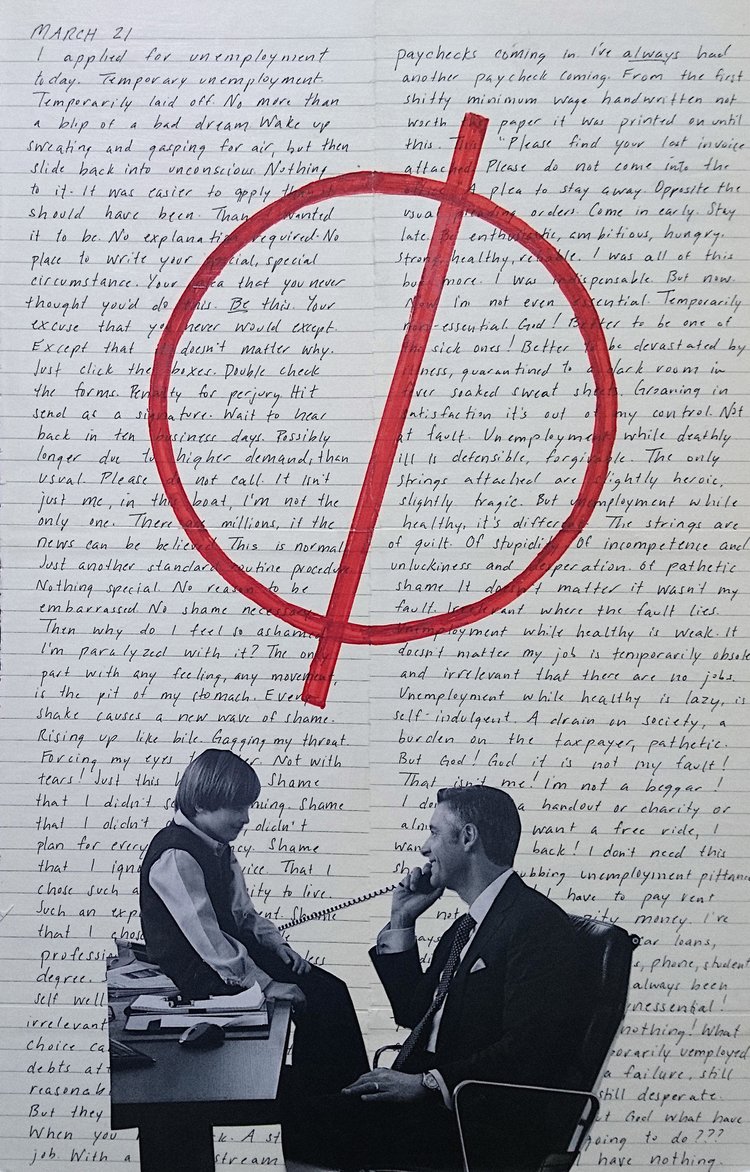 MARCH 21
I applied for unemployment
today. Temporary unemployment
Temporarily laid off No more than
a blip of a bad dream Wake up
sweating and gasping for air, but then
slide back into unconscious Nothing
to it. It was easier to apply than it
should have been. Than I wanted
it to be. No explanation required. No
place to write your special, special
circumstance. Your idea that you never
thought you'd do this. Be this. Your
excuse that you never would except.
Except that it doesn't matter why.
Just click the boxes. Double check
the forms. Penalty for perjury Hit
send as a signature. Wait to hear
back in ten business days. Possibly
longer due to higher demand, than
usual. Please do not call. It isn't
just me, in this boat, I'm not the
only one. There are millions, if the
news can be believed This is normal
Just another standard routine procedure
Nothing special. No reason to be
embarrassed No shame necessary
Then why do I feel so ashamed
I'm paralyzed with it? The only
part with any feeling, any movement,
is the pit of my stomach. Every
shake causes a new wave of shame.
Rising up like bile. Gagging my throat.
Forcing my eyes Not with
tears! Just this Shame
that I didn't Shame
that I didn't didn't
plan for every Shame
that I That I
chose such a to live.
Such an
that I
degree.
self well
irrelevant
choice
debts
But they
When you A
job. With a stream
paychecks coming in I've always had
another paycheck coming. From the first
shitty minimum wage handwritten not
worth the paper it was printed on until
this. "Please find your last invoice
attached Please do not come into the
office. A plea to stay away. Opposite the
usual pleading orders. Come in early. Stay
late. Be enthusiastic, ambitious, hungry.
Strong, healthy, reliable. I was all of this
but more. I was indispensable. But now.
Now I'm not even essential. Temporarily
non-essential. God! Better to be one of
the sick ones! Better to be devastated by
illness, quarantined to a dark room in
fever soaked sweat sheets. Groaning in
satisfaction it's out of my control. Not
at fault. Unemployment while deathly
ill is defensible, forgivable. The only
strings attached are slightly heroic,
slightly tragic. But unemployment while
healthy, it's different. The strings are
of guilt. Of stupidity Of incompetence and
unluckiness and desperation. Of pathetic
shame It doesn't matter it wasn't my
fault. Irrelevant where the fault lies.
Unemployment while healthy is weak. It
doesn't matter my job is temporarily obsolete
and irrelevant that there are no jobs.
Unemployment while healthy is lazy, is
self-indulgent. A drain on society, a
burden on the taxpayer, pathetic.
But God! God it is not my fault!
That isn't me! I'm not a beggar!
I a handout or charity or
want a free ride, I
back! I don't need this
unemployment pittance
I have to pay rent
money. I've
loans,
phone, student
always been
nothing! What
a failure, still
still desperate.
God what have
going to do???
I have nothing.